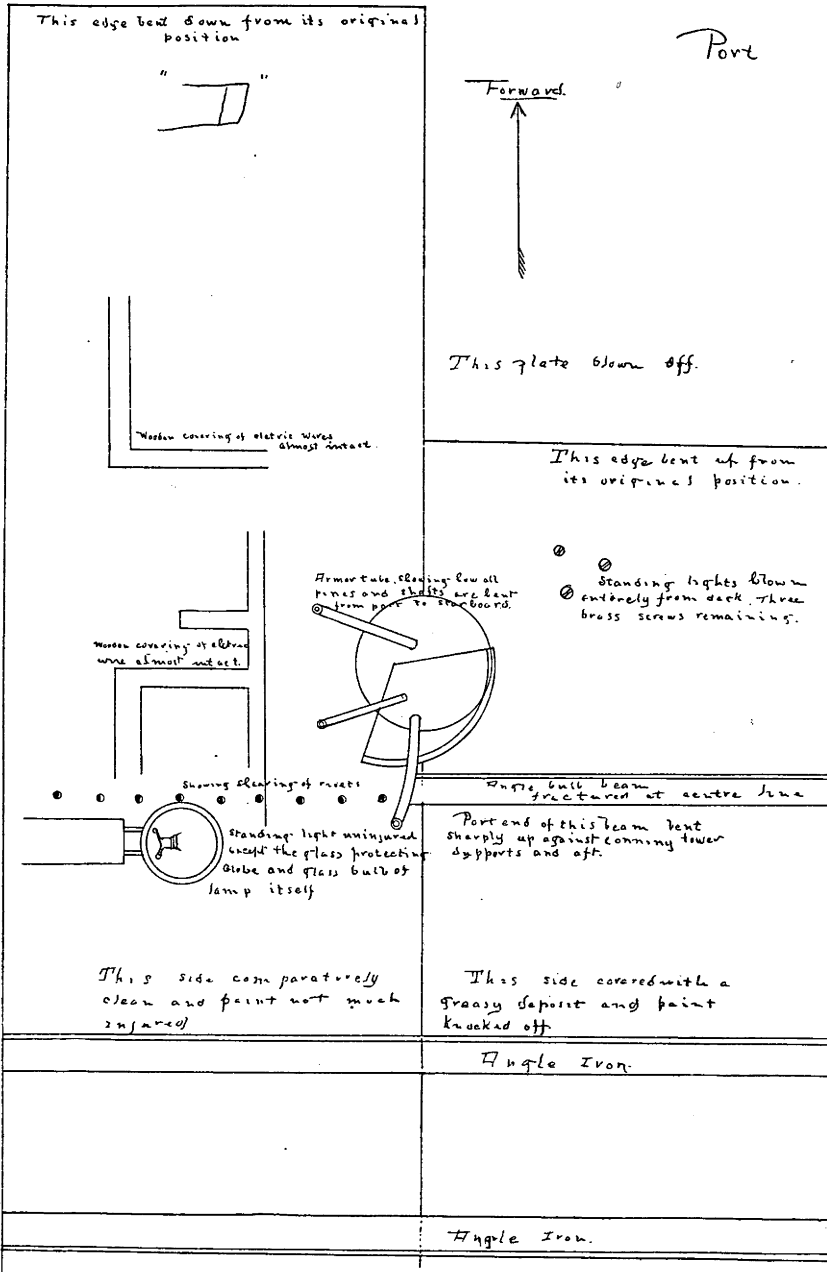 This edge bent down from its original
position
" "
Port
Forward.
This plate blown off.
Wooden covering of eletric wires
almost intact.
This edge bent up from
its original position.
Armor tube, showing how all
pipes and shafts are bent
from port to starboard.
Standing lights blown
entirely from deck. Three
brass screws remaining.
Wooden covering of eletric
wire almost intact.
Showing shearing of rivets
Angle bulb beam
fractured at centre line
Standing light uninjured
except the glass protecting
Globe and glass bulb of
lamp itself
Port end of this beam bent
sharply up against conning tower
supports and aft.
This side comparatively
clean and paint not much
injured
This side covered with a
greasy deposit and paint
knocked off
Angle Iron.
Angle Iron.